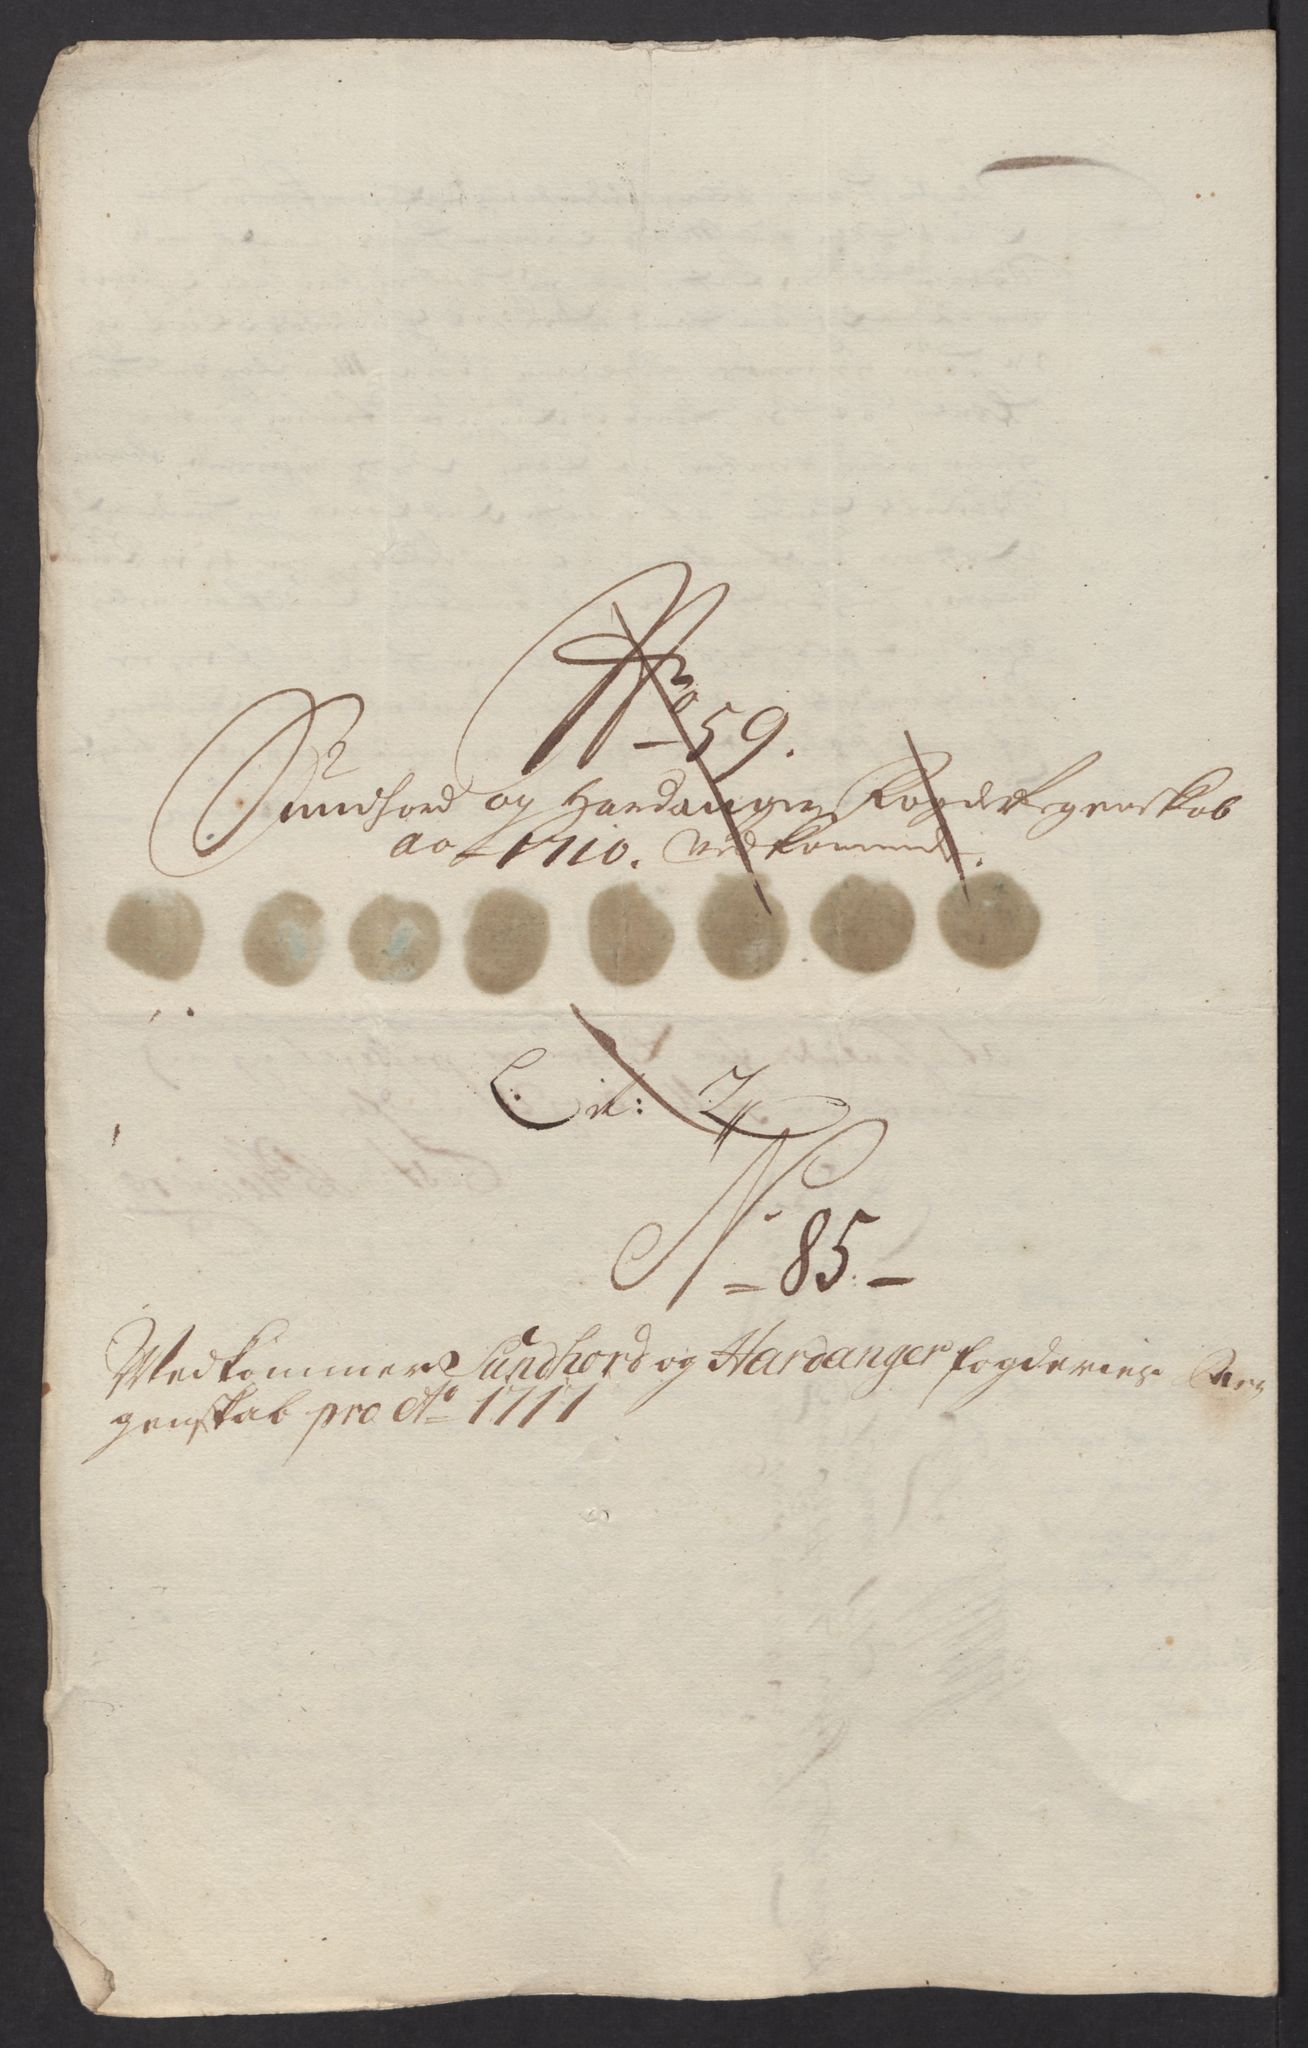 No 59.
Sundhord og Hardanger Fogderegenskab
ao 1710. Vedkommende.
Lit: Z
N. 85
Vedkommer Sundhord og Hardanger fogderies Reg
genskab pro Ao 1711